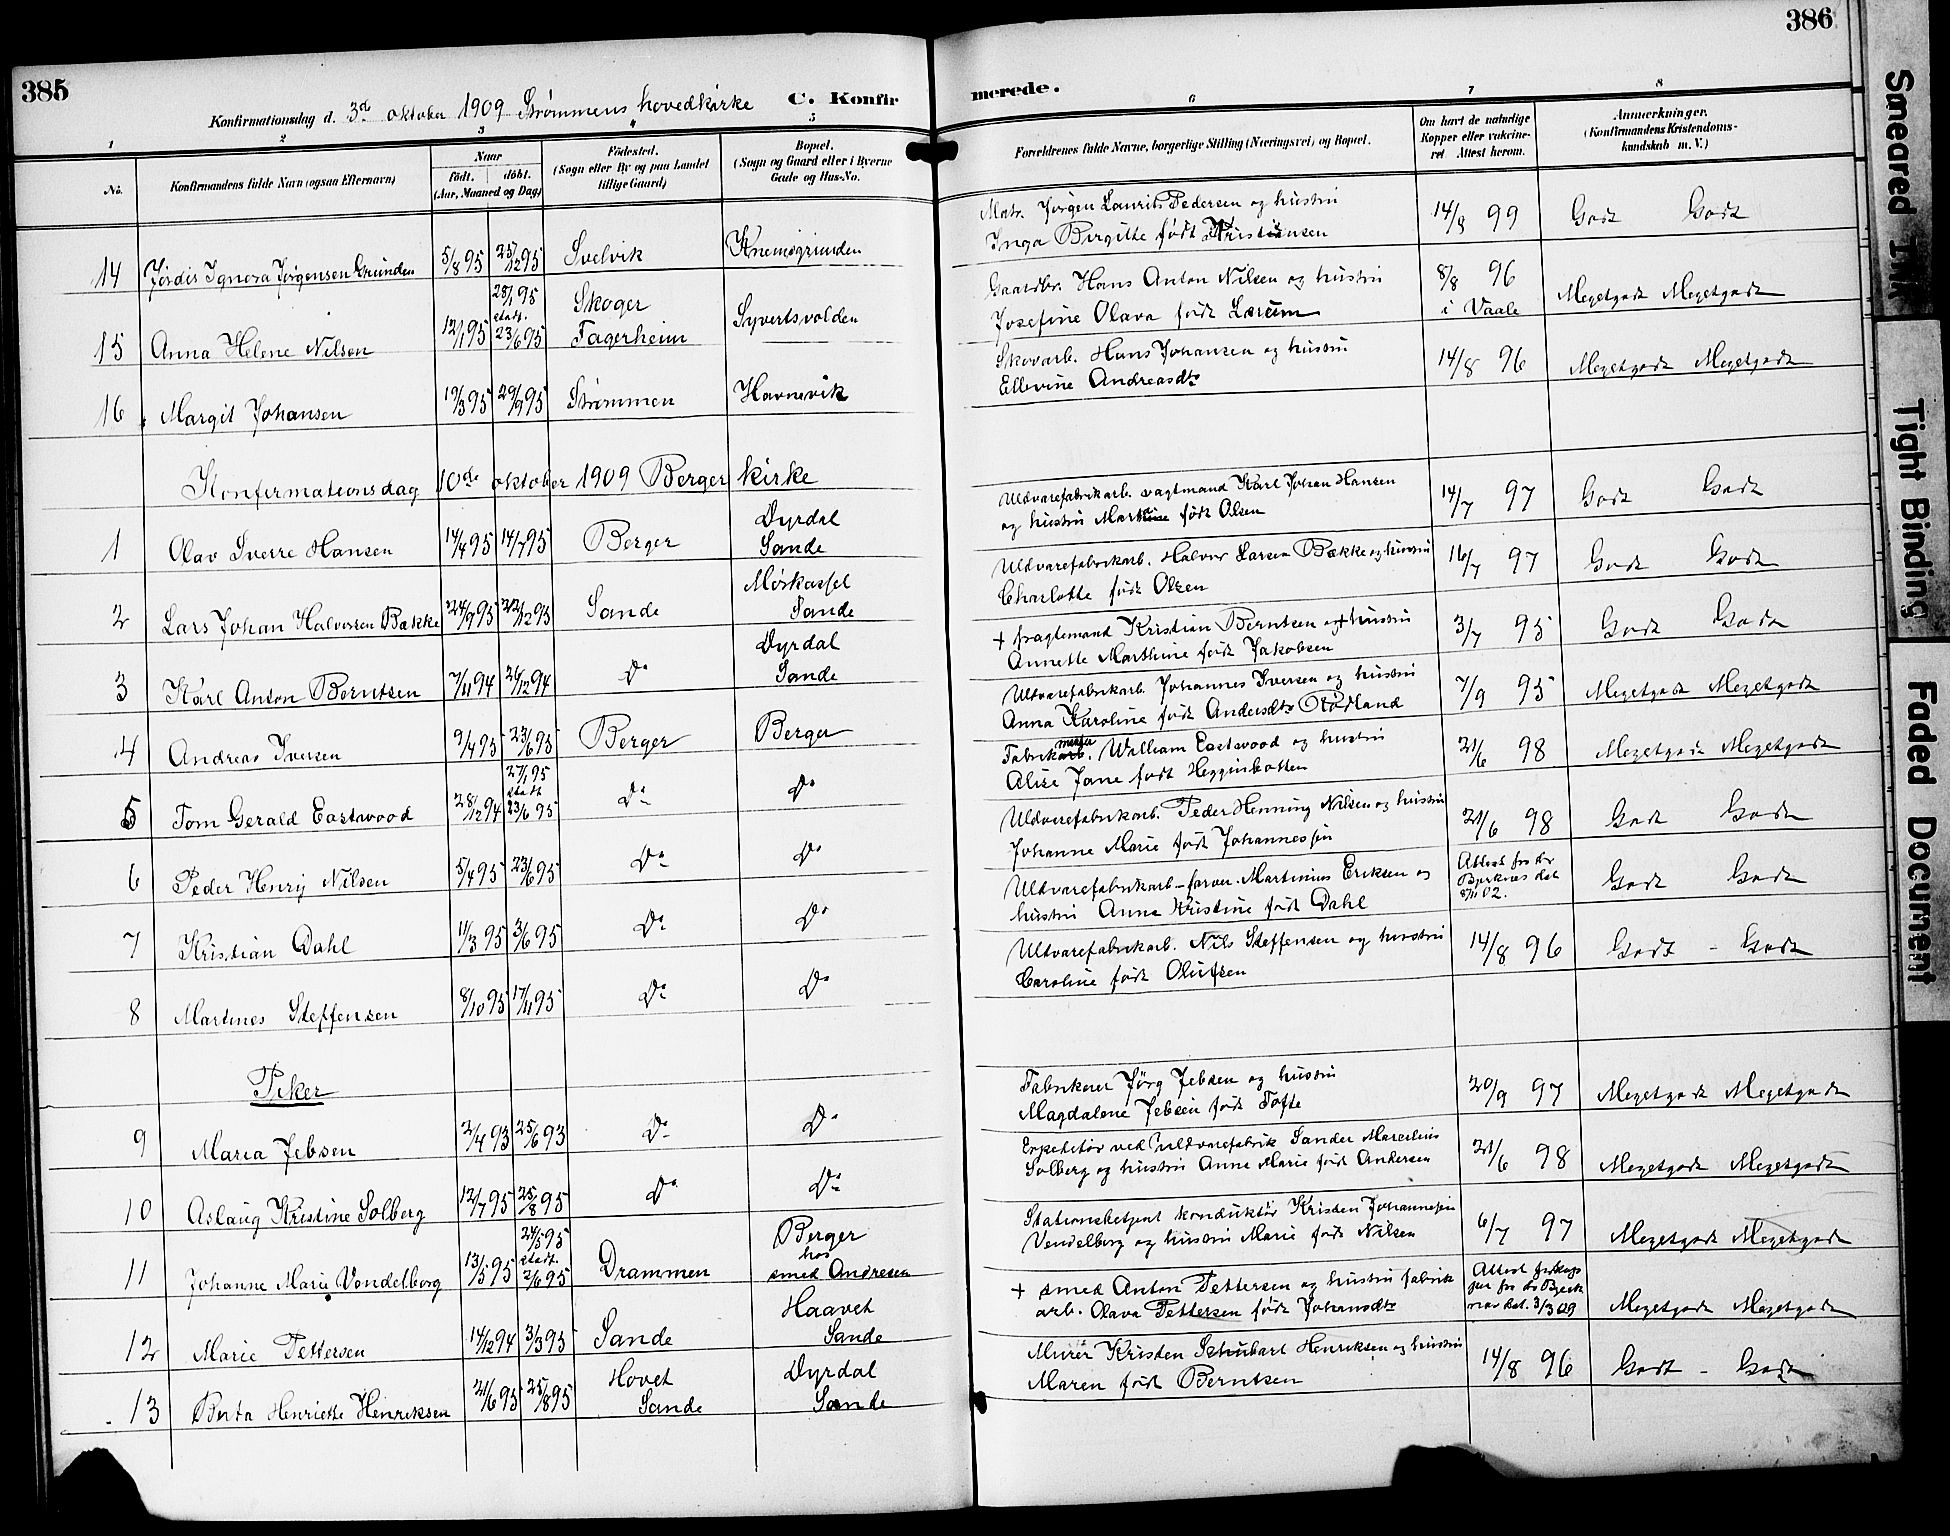 385
386
Konfirmationsdag d. 3d oktober 1909 Strømmens hovedkirke
C. Konfirmerede.
1 2 3 4 5 6 7 8
No. Konfirmandens fulde Navn (ogsaa Efternavn)
Naar født. døbt. (Aar, Maaned og Dag)
Fødested. (Sogn eller By og paa Landet tillige Gaard)
Bopæl. (Sogn og Gaard eller i Byerne Gade og Hus-No.
Forældrenes fulde Navne, borgerlige Stilling (Næringsvei) og Bopæl.
Om havt de naturlige Kopper eller vakcineret Attest herom.
Anmerkninger. (Konfirmandens Kristendomskundskab m. V.)
14 Jørdis Ignora Jørgensen Grunden 5/8 95 25/12 95 Svelvik Knemsgrunden
Matr. Jørgen Laurits Pedersen og hustru
Inga Birgitte født Kristiansen 14/8 99 Godt Godt
15 Anna Helene Nilsen 12/1 95 28/1 95 stadf. 23/6 95 Skoger Fagerheim Syvertsvolden
Gaardbr. Hans Anton Nilsen og hustru
Josefine Olava født Lørum 8/8 96 i Vaale Megetgodt Megetgodt
16 Margit Johansen 19/3 95 29/9 95 Strømmen Havnevik
Skovarb. Hans Johansen og hustru
Ellevine Andreasdtr 14/8 96 Megetgodt Megetgodt
Konfirmationsdag 10de oktober 1909 Berger kirke
1 Olav Sverre Hansen 14/4 95 14/7 95 Berger Dyrdal Sande
Uldvarefabrikarb. vagtmand Karl Johan Hansen
og hustru Marthine født Olsen 14/7 97 Godt Godt
2 Lars Johan Halvorsen Bække 24/9 95 22/12 95 Sande Mørkassel Sande
Uldvarefabrikarb. Halvor Larsen Bække og hustru
Charlotte født Olsen 16/7 97 Godt Godt
3 Karl Anton Berntsen 7/11 94 26/12 94 Do Dyrdal Sande
+ fragtemand Kristian Berntsen og + hustru
Annette Marthine født Jakobsen 3/7 95 Godt Godt
4 Andreas Iversen 9/4 95 23/6 95 Berger Berger
Uldvarefabrikarb. Johannes Iversen og hustru
Anna Karoline født Andersdtr Rødland 7/9 95 Megetgodt Megetgodt
5 Tom Gerald Eastwood 28/12 94 27/1 95 stadf. 23/6 95 Do Do
Fabrikarb. William Eastwood og hustru
Alise Jane født Higginbotten 21/6 98 Megetgodt Megetgodt
6 Peder Henrij Nilsen 5/4 95 23/6 95 Do Do
Uldvarefabrikarb. Peder Henning Nilsen og hustru
Johanne Marie født Johannesen 21/6 98 Godt Godt
7 Kristian Dahl 11/3 95 3/6 95 Do Do
Uldvarefabrikarb. - farver. Martinius Eriksen og
hustru Anna Kristine født Dahl Attest fra dr Bjerknes dat 8/11 02. Godt Godt
8 Martines Steffensen 8/10 95 17/11 95 Do Do
Uldvarefabrikarb. Nils Steffensen og hustru
Caroline født Olufsen 14/8 96 Godt - Godt
Piker
9 Maria Jebsen 2/4 93 25/6 93 Do Do
Fabrikeier Jørg Jebsen og hustru
Magdalene Jebsen født Tofte 20/9 97 Megetgodt Megetgodt
10 Aslaug Kristine Solberg 12/7 95 25/8 95 Do Do
Expeditør ved uldvarefabrik Sander Marcelius
Solberg og hustru Anne Marie født Andersen 21/6 98 Megetgodt Megetgodt
11 Johanne Marie Vendelborg 13/5 95 24/5 95 stadf. 2/6 95 Drammen Berger hos smed Andresen
Stationsbetjent konduktør Kristen Johannesen
Vendelborg og hustru Marie født Nilsen 6/7 97 Megetgodt Megetgodt
12 Marie Pettersen 14/12 94 3/3 95 Sande Haavet Sande
+ smed Anton Pettersen og hustru fabrik
arb. Olava Pettersen født Johansdtr Attest fra dr dat. 3/3 09 Megetgodt Megetgodt
13 Berta Henriette Henriksen 21/6 95 25/8 95 Hovet Sande Dyrdal Sande
Murer Kristen Schubart Henriksen og hustru
Maren født Berntsen 14/8 96 Godt - Godt
Smeared Ink
Tight Binding
Faded Document